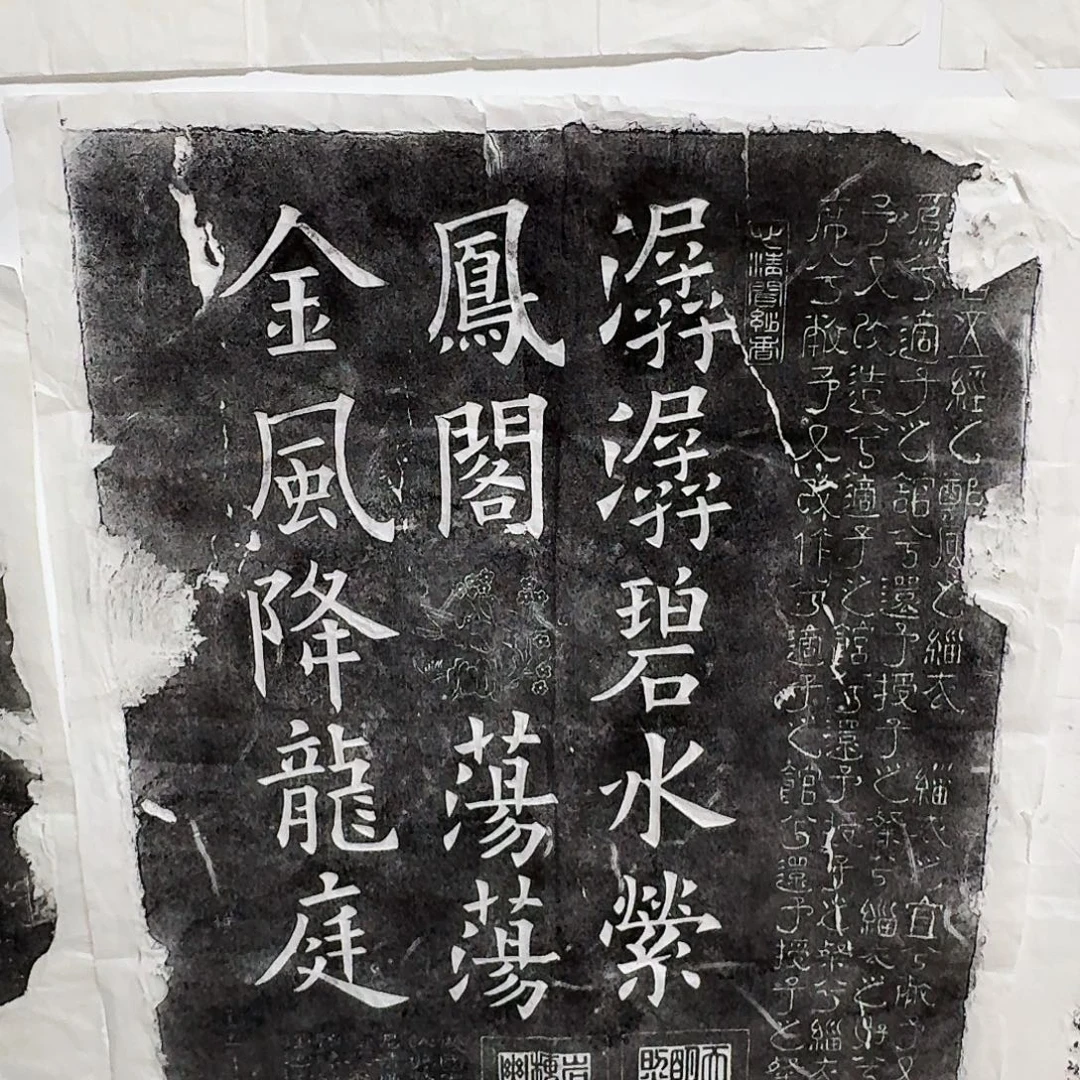 五經之鄭風之緇衣 緇衣之宜兮敝予又
為兮適子之館兮還予授子之粲兮緇衣之好兮
予又改造兮適子之館兮還予授子之粲兮緇衣
席兮敝予又改作兮適子之館兮還予授子之粲
心清聞妙香
潺潺碧水縈
鳳閣 蕩蕩
金風降龍庭